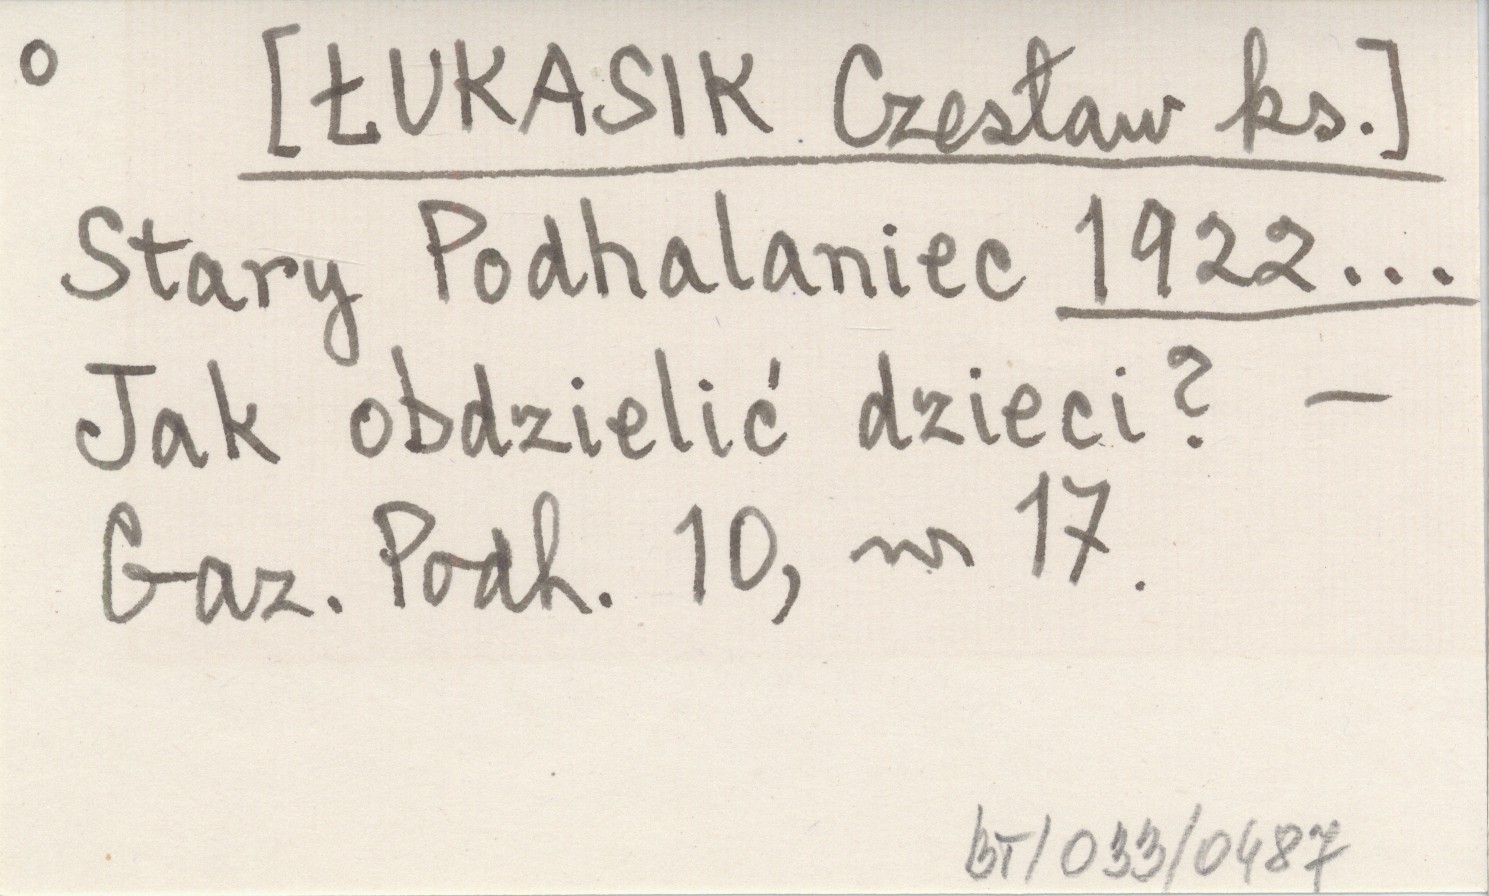 o [ŁUKASIK Czesław ks.]
Stary Podhalaniec 1922...
Jak obdzielić dzieci? –
Gaz. Podh. 10, nr 17.
BT/033/0487